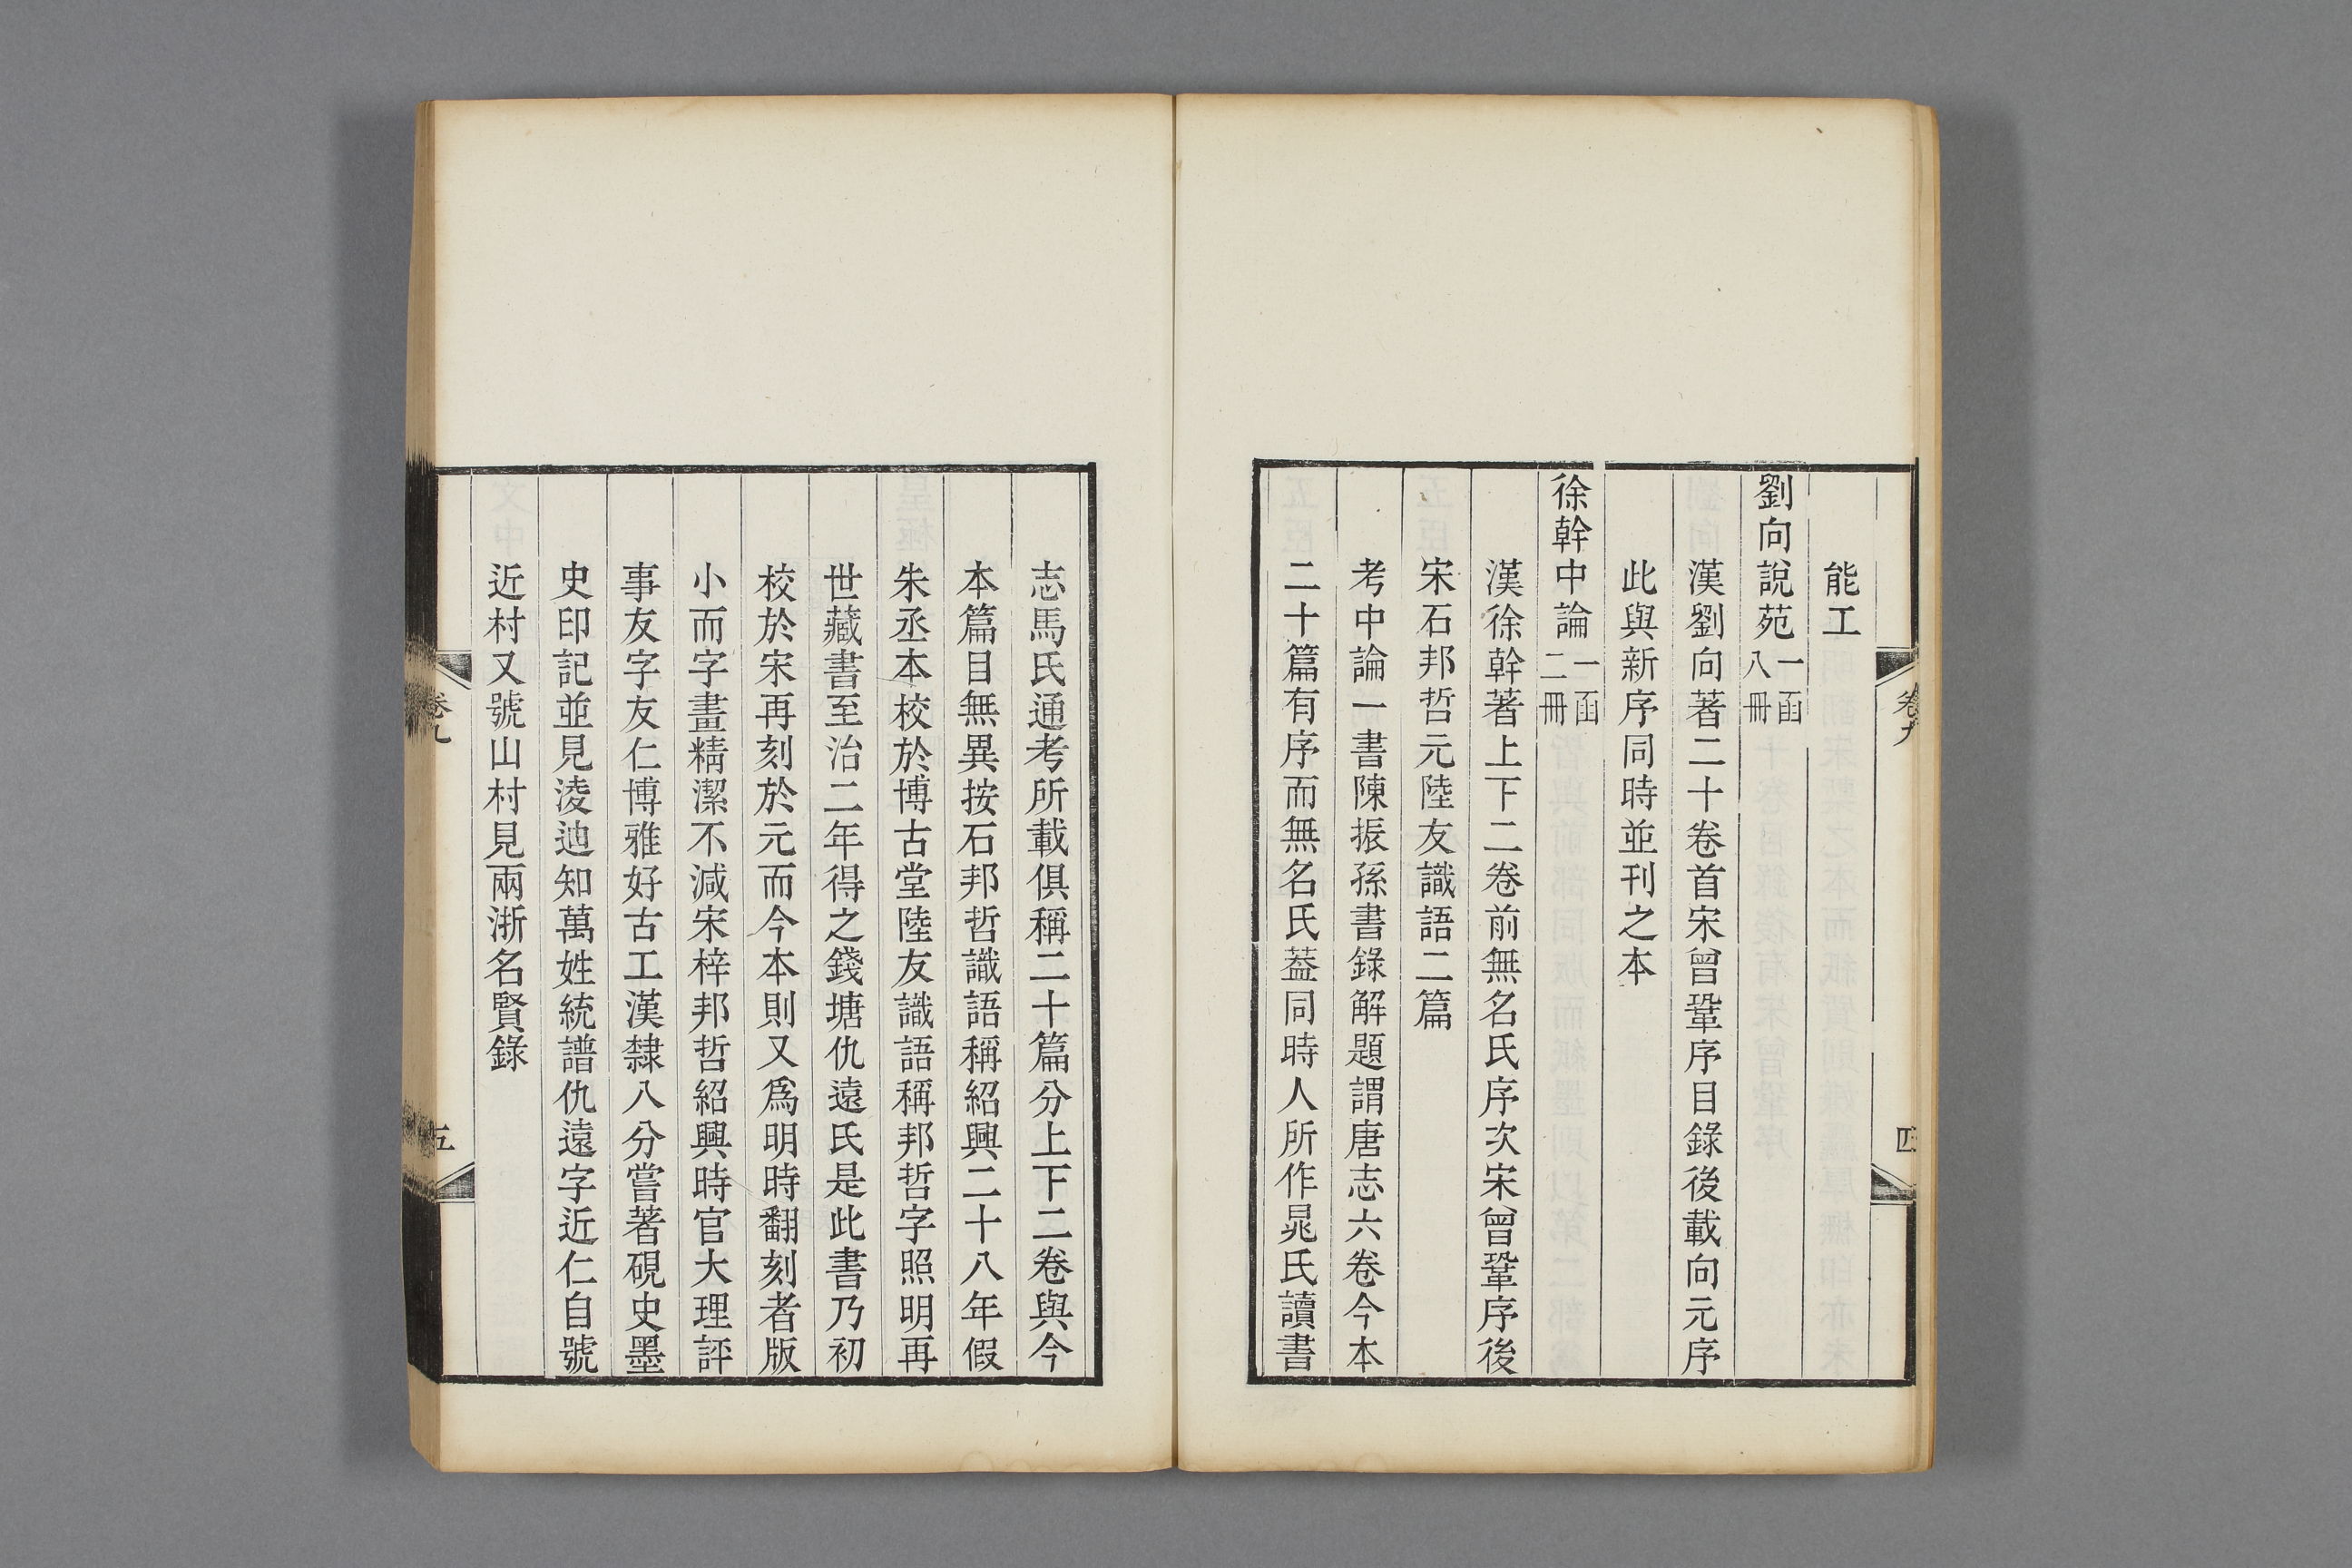 能工
劉向說苑一函八冊
漢劉向著二十卷首宋曾鞏序目錄後載向元序
此與新序同時並刊之本
徐幹中論一函二冊
漢徐幹著上下二卷前無名氏序次宋曾鞏序後
宋石邦哲元陸友識語二篇
考中論一書陳振孫書錄解題謂唐志六卷今本
二十篇有序而無名氏葢同時人所作晁氏讀書
卷九
四
志馬氏通考所載俱稱二十篇分上下二卷與今
本篇目無異按石邦哲識語稱紹興二十八年假
朱丞本校於博古堂陸友識語稱邦哲字照明再
世藏書至治二年得之錢塘仇遠氏是此書乃初
校於宋再刻於元而今本則又為明時翻刻者版
小而字畫精潔不減宋梓邦哲紹興時官大理評
事友字友仁博雅好古工漢隸八分嘗著硯史墨
史印記並見淩迪知萬姓統譜仇遠字近仁自號
近村又號山村見兩浙名賢錄
卷九
五